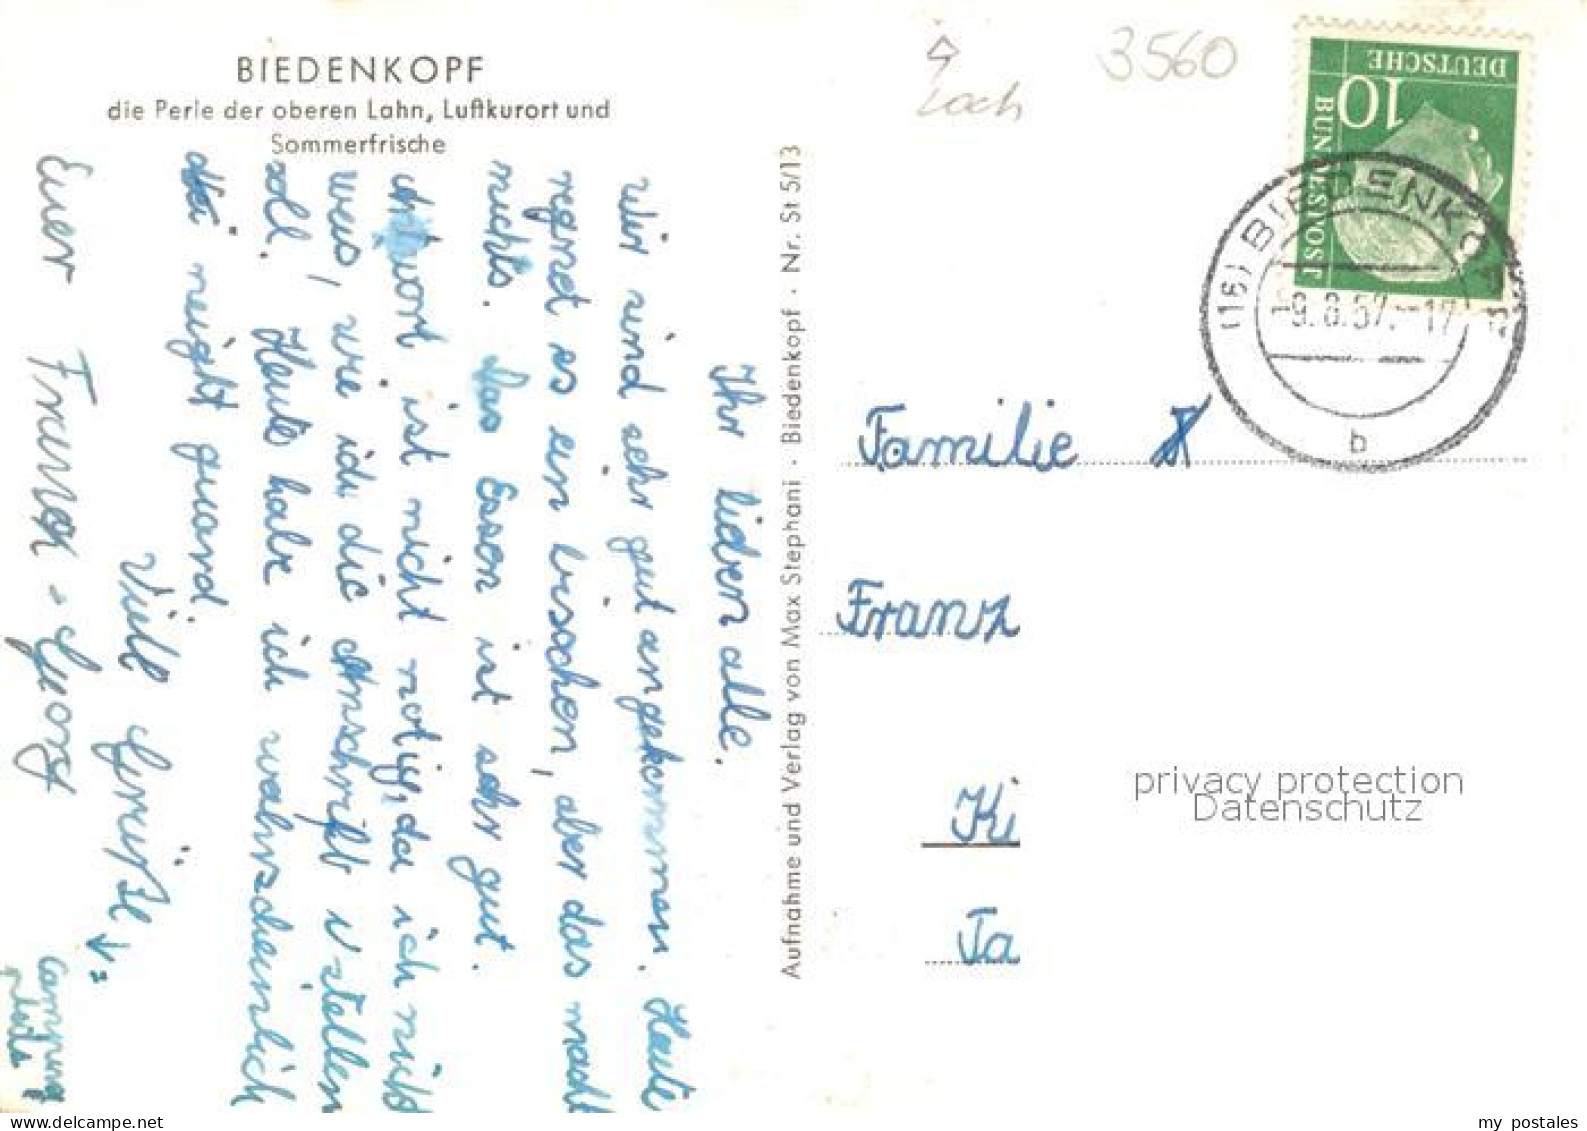 BIEDENKOPF
die Perle der oberen Lahn, Luftkurort und
Sommerfrische
Ihr lieben alle.
Wir sind sehr gut angekommen. Heute
regnet es ein bisschen, aber das macht
nichts. Das Essen ist sehr gut.
Antwort ist nicht nötig, da ich nicht
weis, wie ich die Anschrift stellen
soll. Heute habe ich wahrscheinlich
guand.
Viele Grüße
Euer Franz-Georg
Camping
Aufnahme und Verlag von Max Stephani · Biedenkopf · Nr. St 5/13
Loch
3560
DEUTSCHE
BUNDESPOST
10
(16) BIEDENKOPF
-9.8.57.-17
b
Familie
Franz
Ki
Ta
privacy protection
Datenschutz
www.delcampe.net
my_postales